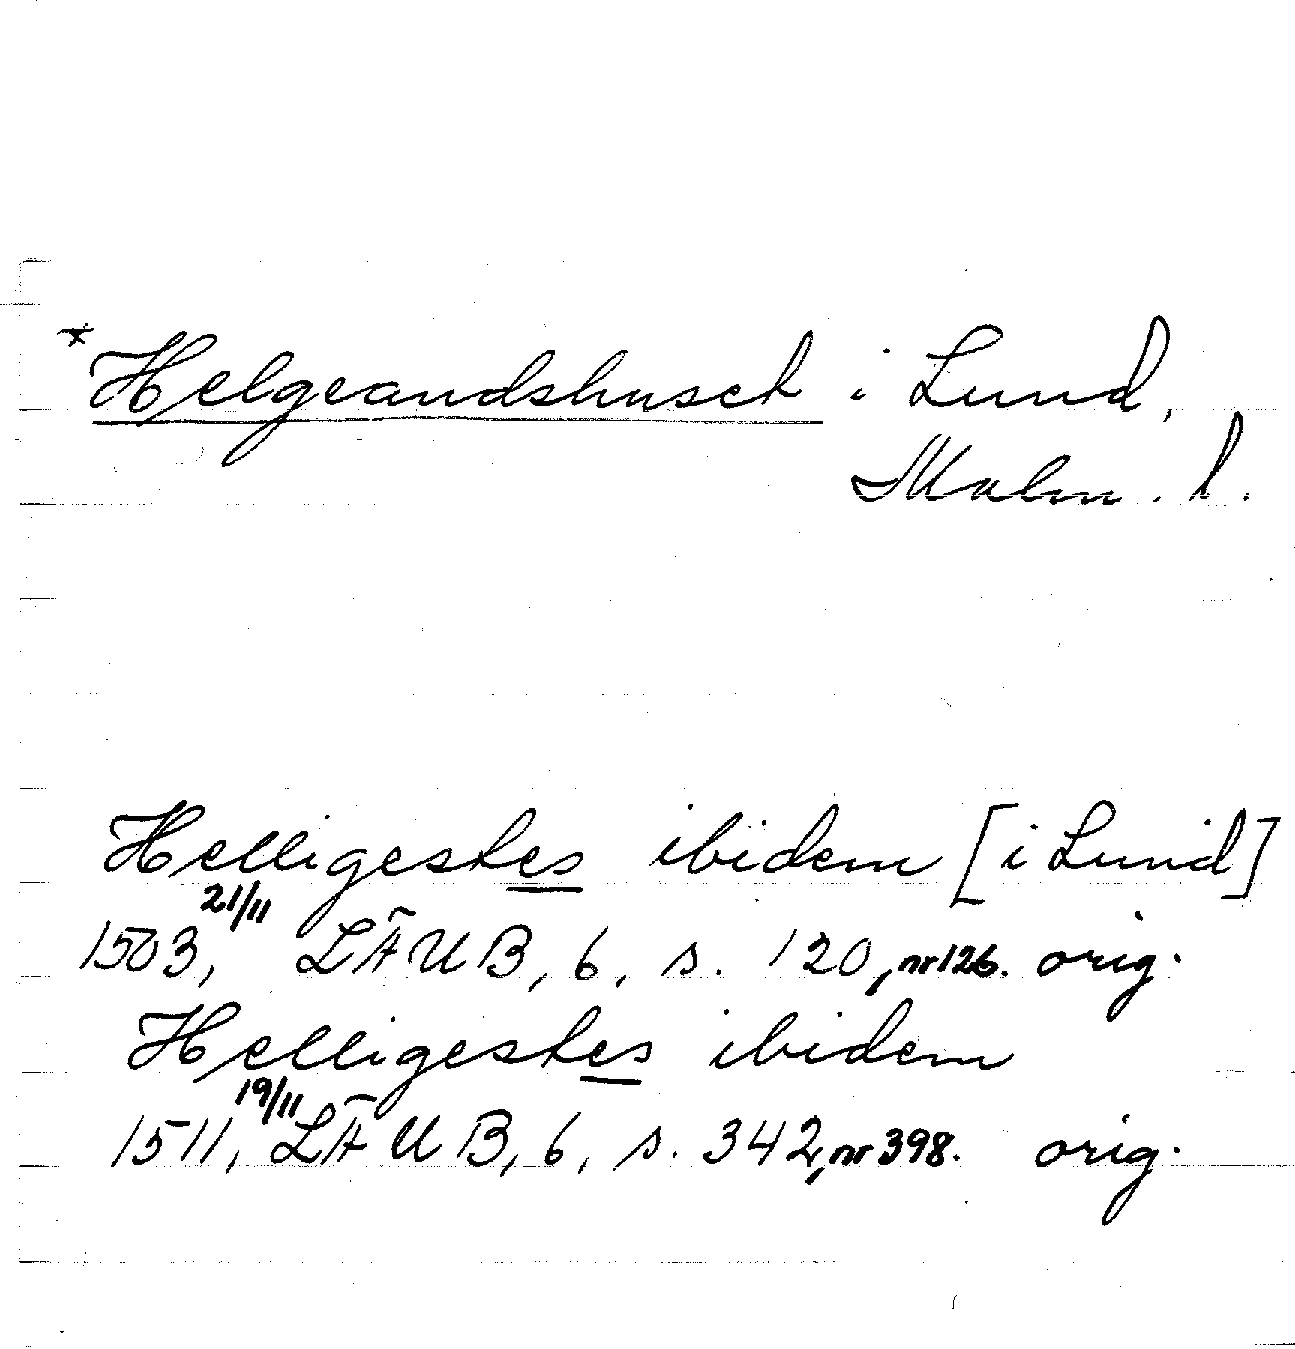 * Helgeandshuset i Lund,
Malm. l.
Helligestes ibidem [i Lund]
1503, 21/11 LÄUB, 6, s. 120, nr 126. orig.
Helligestes ibidem
1511, 19/11 LÄUB, 6, s. 342, nr 398. orig.